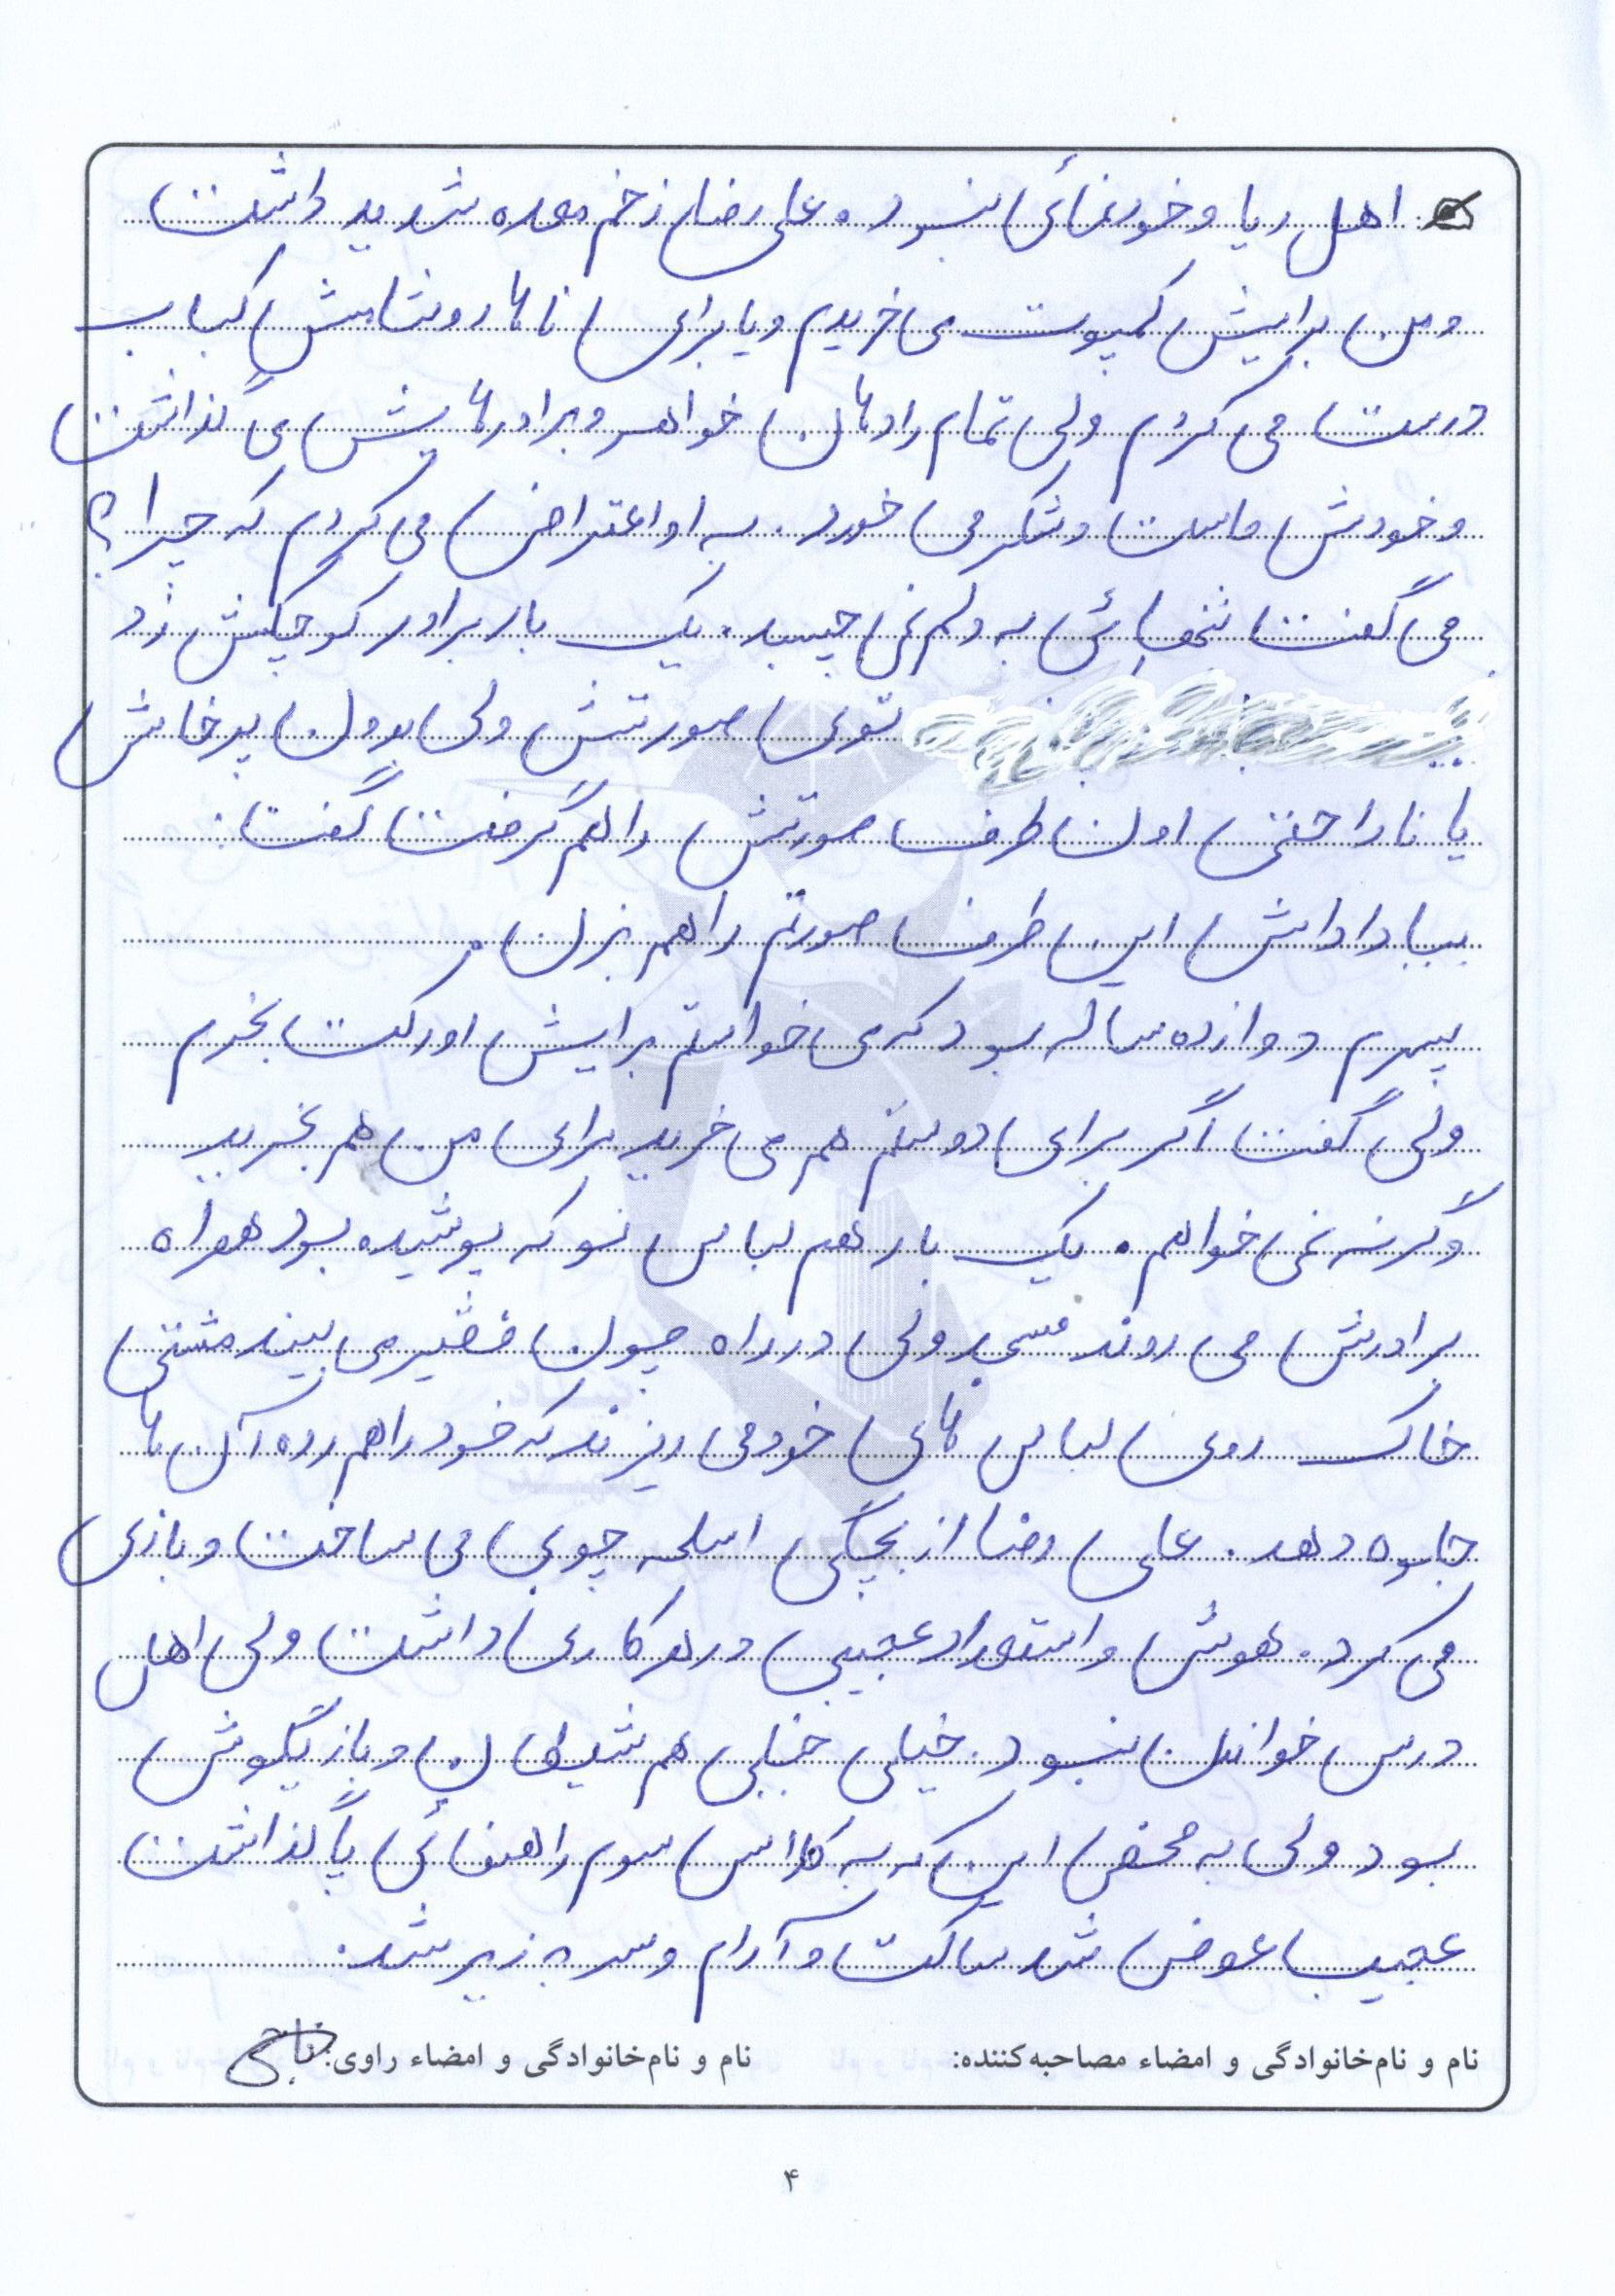 اهل ریا و خودنمائی نبود. علی رضا زخم معده شدید داشت
و من برایش کمپوت می خریدم و یا برای ناهار و شامش کباب
درست می کردم ولی تمام را دهان خواهر و برادرهایش می گذاشت
و خودش ماست و شکر می خورد. به او اعتراض می کردم که چرا؟
می گفت تنهائی به دلم نمی چسبد. یک بار برادر کوچکیش زد
توی صورتش ولی بدون پرخاش
یا ناراحتی اون طرف صورتش را هم گرفت گفت:
بیا داداش این طرف صورتم را هم بزن.
پسرم دوازده ساله بود که می خواستم برایش اورکت بخرم
ولی گفت اگر برای دوستم هم می خرید برای من هم بخرید
وگرنه نمی خواهم. یک بار هم لباس نو که پوشیده بود همراه
برادرش می روند مسجد ولی در راه چون فقیر می بیند مشتی
خاک روی لباس های خود می ریزند که خود را هم رده آن ها
جلوه دهد. علی رضا از بچگی اسلحه چوبی می ساخت و بازی
می کرد. هوش و استعداد عجیبی در هر کاری داشت ولی اهل
درس خواندن نبود. خیلی خیلی هم شیطان و بازیگوش
بود ولی به محض این که به کلاس سوم راهنمائی پا گذاشت
عجیب عوض شد ساکت و آرام و سر به زیر شد.
نام و نام‌خانوادگی و امضاء مصاحبه‌کننده: نام و نام‌خانوادگی و امضاء راوی:
۴